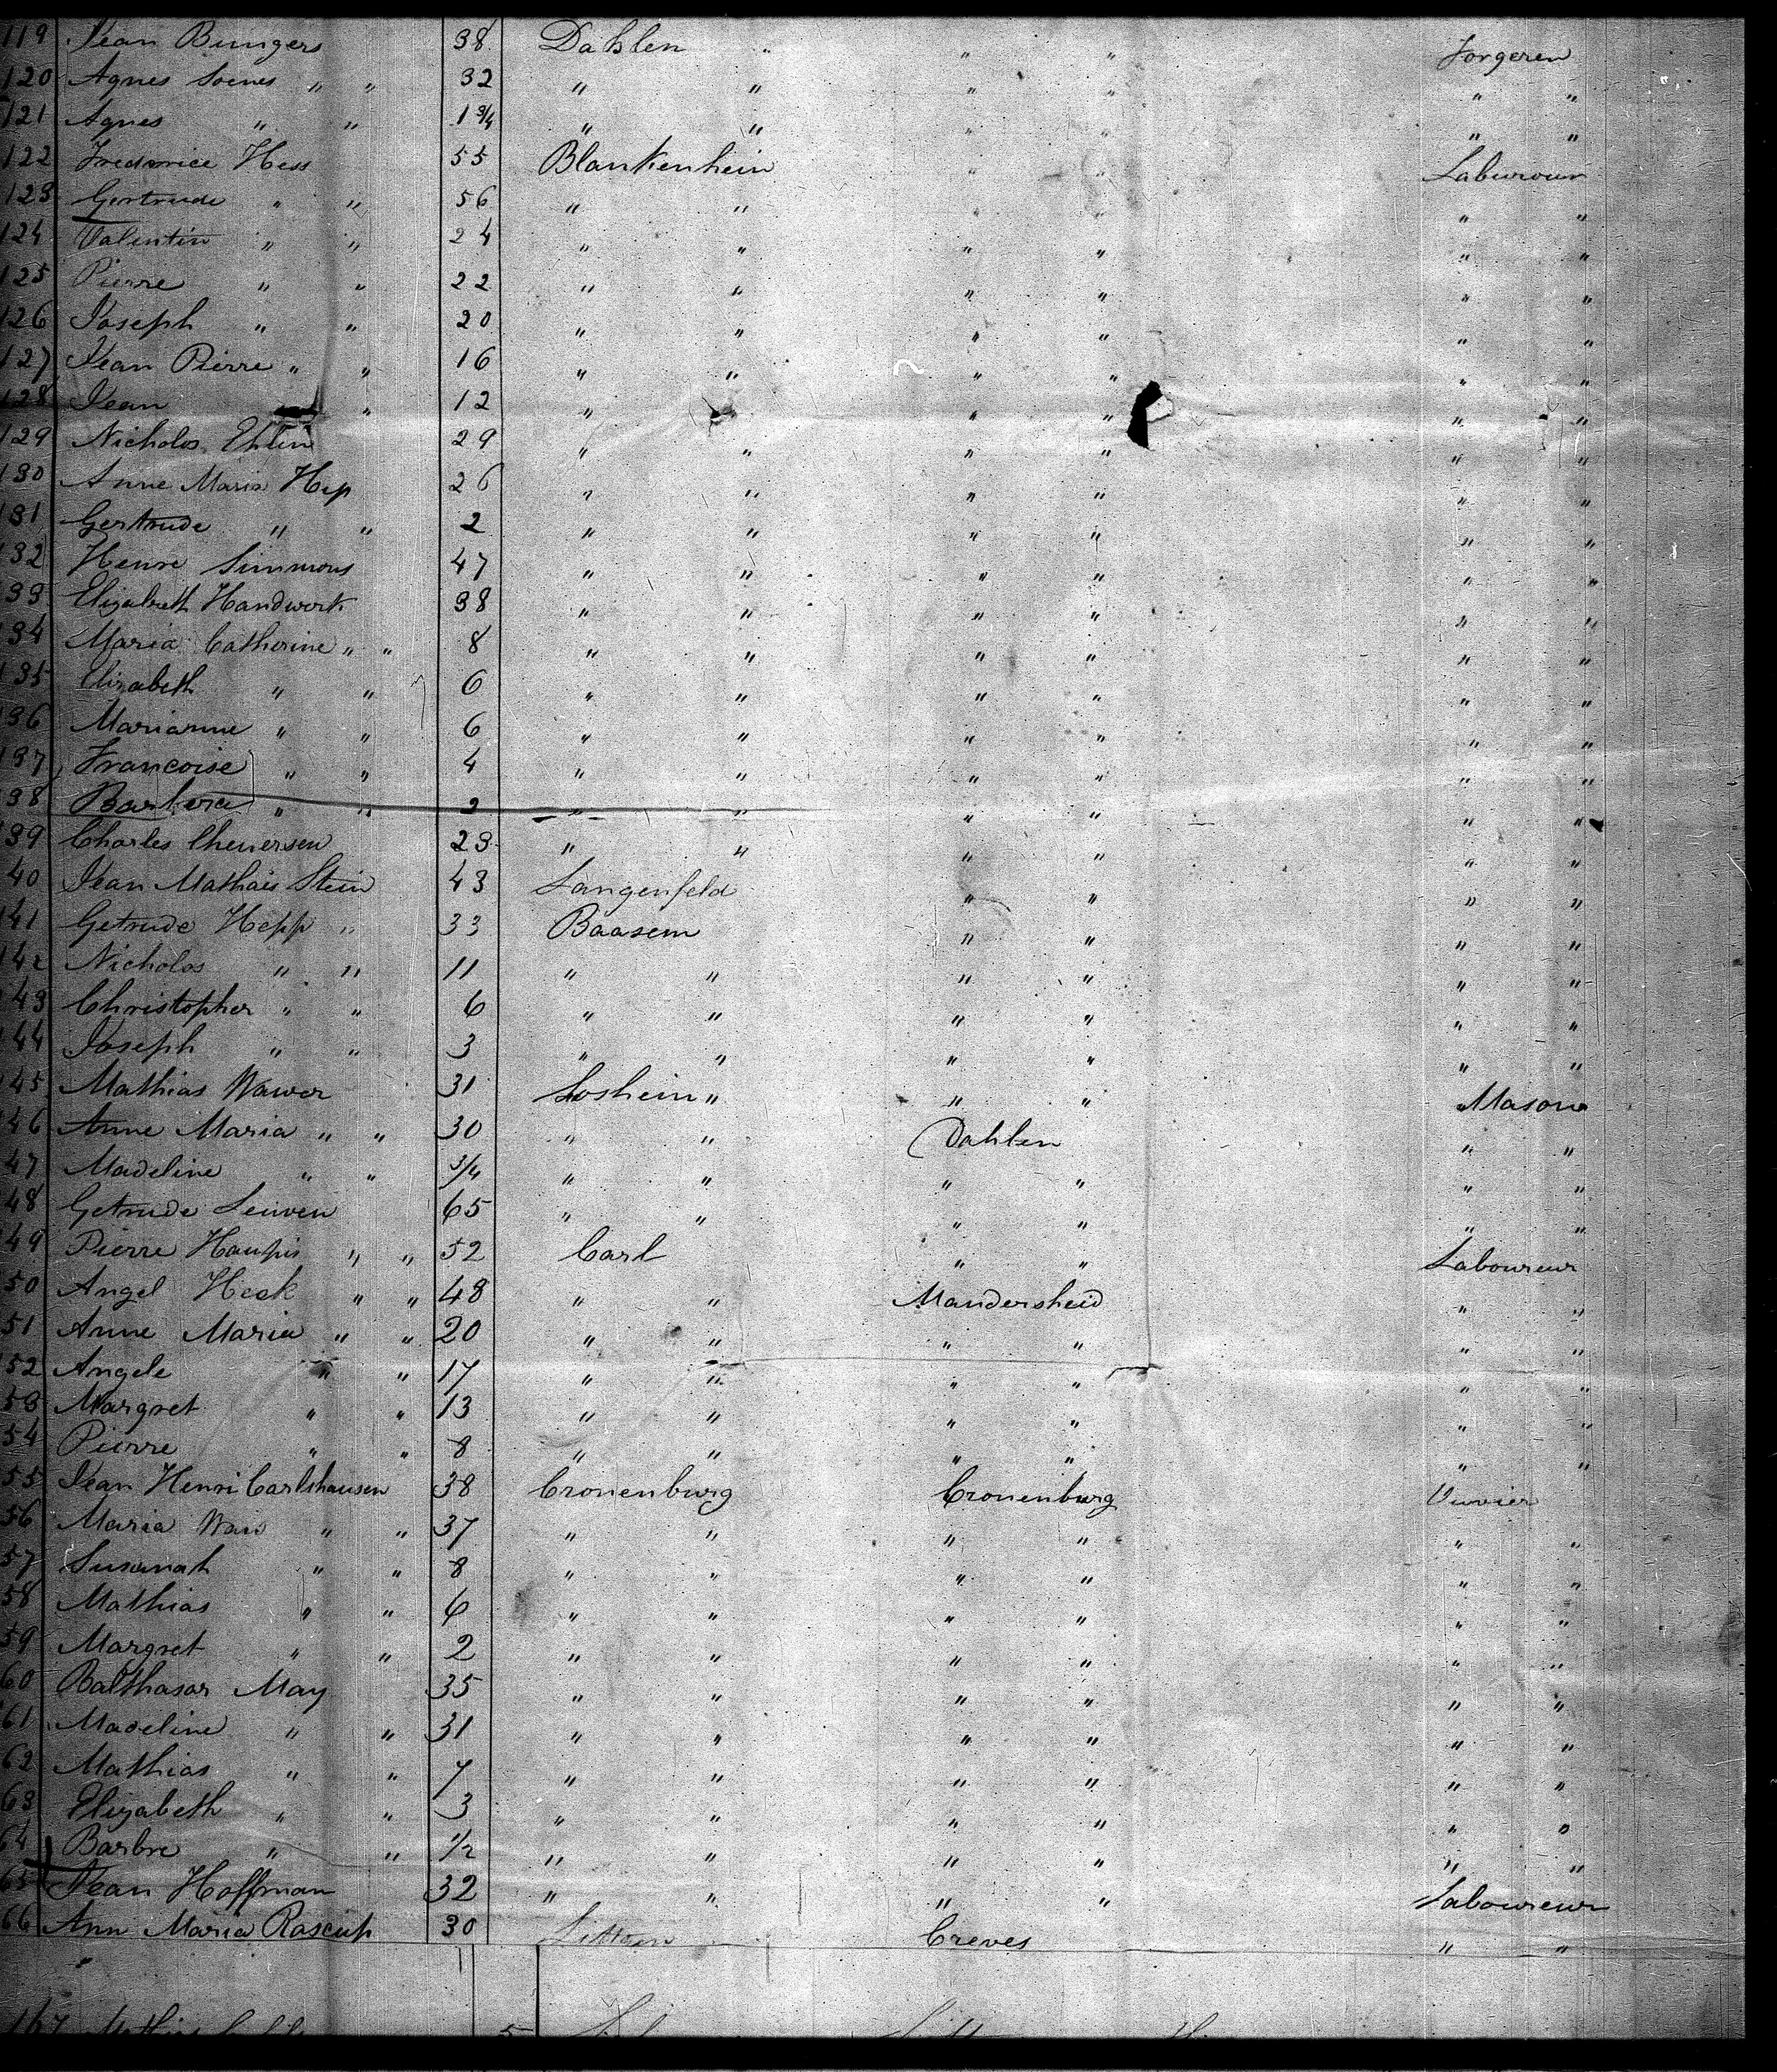 119 Jean Bungers 38 Dahlen " " " Forgeren
120 Agnes Soenes " " 32 " " " " " "
121 Agnes " " 1 3/4 " " " " " "
122 Frederice Hess 55 Blankenhein " " Labureur
123 Gertrude " " 56 " " " " " "
124 Valentin " " 24 " " " " " "
125 Pierre " " 22 " " " " " "
126 Joseph " " 20 " " " " " "
127 Jean Pierre " " 16 " " " " " "
128 Jean " 12 " " " " " "
129 Nicholos Ehlin 29 " " " " " "
130 Anne Maria Hep 26 " " " " " "
131 Gertrude " " 2 " " " " " "
132 Henre Simmons 47 " " " " " "
133 Elizabeth Handwerk 38 " " " " " "
134 Maria Catherine " " 8 " " " " " "
135 Elizabeth " " 6 " " " " " "
136 Marianne " " 6 " " " " " "
137 Francoise " " 4 " " " " " "
138 Barbera " " 2 " " " " " "
139 Charles 23 " " " " " "
40 Jean Mathais Stein 43 Langenfeld " " " "
141 Getrude Hepp " 33 Baasem " " " "
142 Nicholos " " 11 " " " " " "
143 Christopher " " 6 " " " " " "
144 Joseph " " 3 " " " " " "
145 Mathias Wawer 31 Loshein " " " Mason
46 Anne Maria " " 30 " " Dahlen " "
47 Madeline " " 3/4 " " " " " "
48 Getrude Leiwen 65 " " " " " "
49 Pierre Haupis " " 52 Carl " " Laboureur
50 Angel Heck " " 48 " " Mandersheid " "
51 Anne Maria " " 20 " " " " " "
52 Angele " " 17 " " " " " "
53 Margret " " 13 " " " " " "
54 Pierre " " 8 " " " " " "
55 Jean Henri Carlshausen 38 Cronenburg Cronenburg Ouvrier
56 Maria " " 37 " " " " " "
57 Susanah " " 8 " " " " " "
58 Mathias " " 6 " " " " " "
59 Margret " " 2 " " " " " "
60 Balthasar May 35 " " " " " "
61 Madeline " " 31 " " " " " "
62 Mathias " " 7 " " " " " "
63 Elizabeth " " 3 " " " " " "
64 Barbre " " 1/2 " " " " " "
65 Jean Hoffman 32 " " " " Laboureur
66 Ann Maria Rascup 30 Creves " "
167